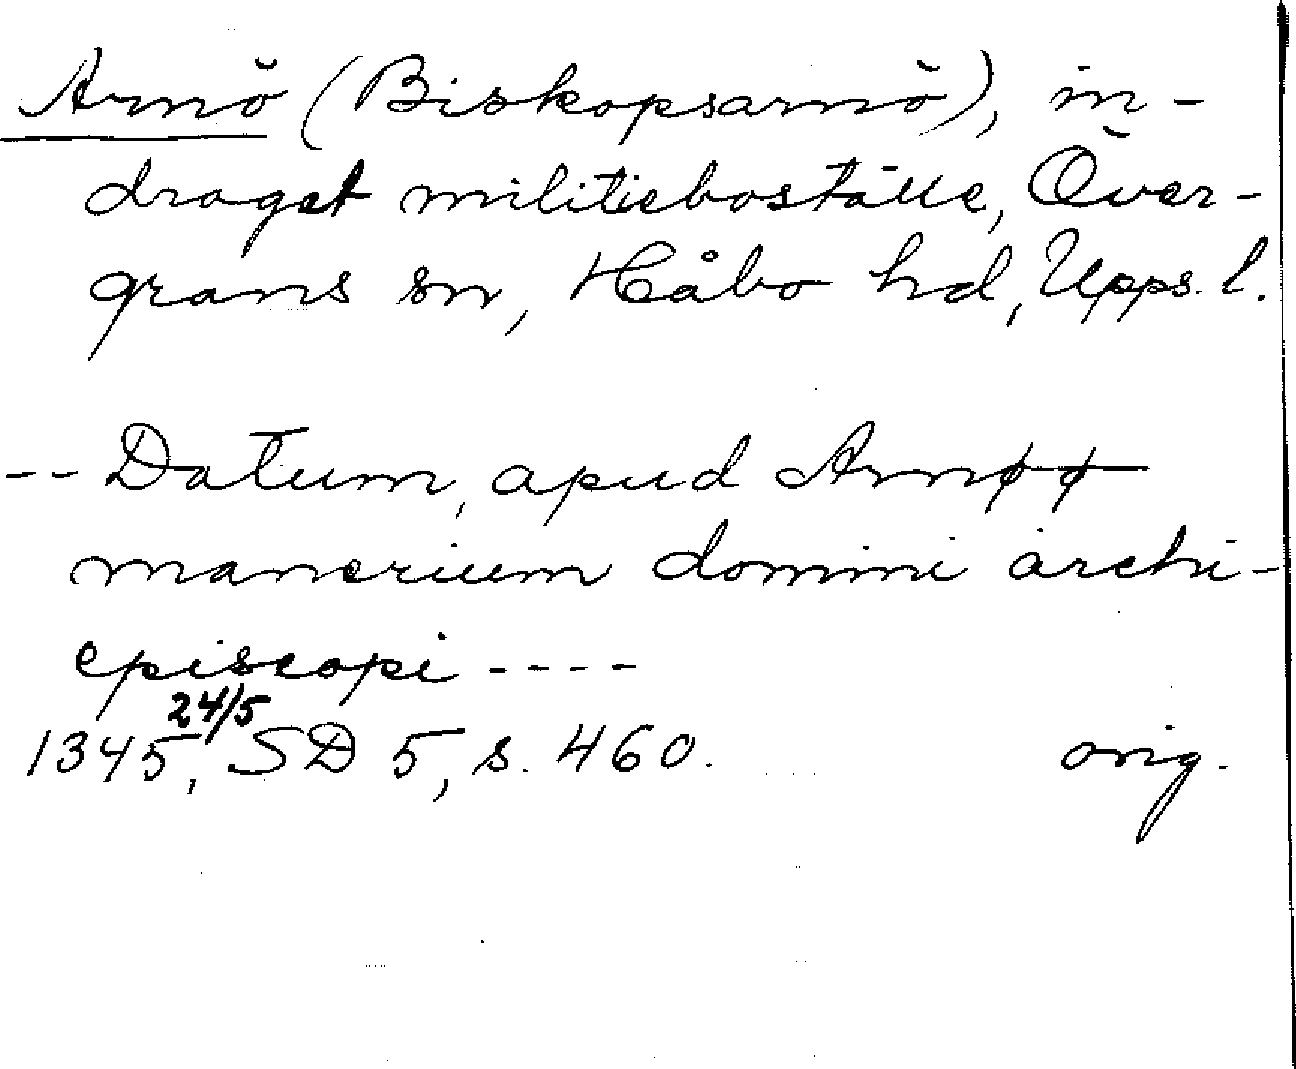 Arnö (Biskopsarnö), in-
draget militieboställe, Över-
grans sn, Håbo hd, Upps. l.
-- Datum, apud Arnøø
manerium domini archi-
episcopi ----
24/5
1345, SD 5, s. 460. orig.